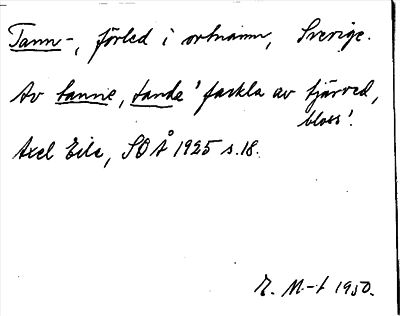 Tann-, förled i ortnamn, Sverige.
Av tanne, tande 'fackla av tjärved,
bloss'.
Axel Eile, SOÅ 1925 s. 18.
E. M.-t 1950.